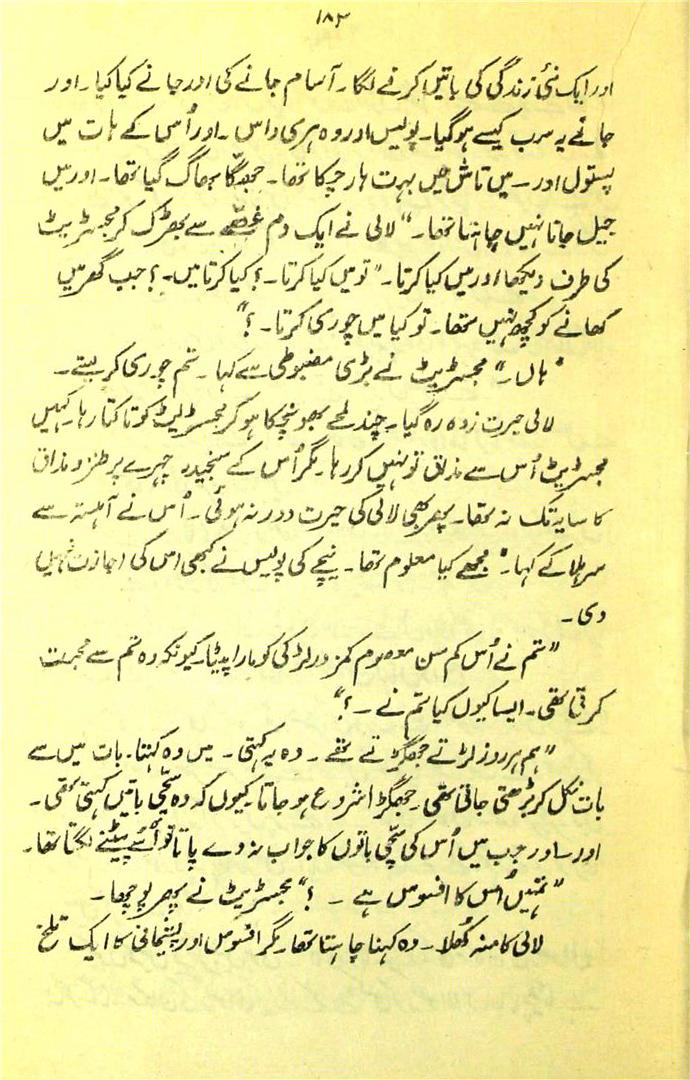 ۱۸۳
اور ایک نئی زندگی کی باتیں کرنے لگا۔ آسام جانے کی اور جانے کیا کیا۔ اور
جانے یہ سب کیسے ہوگیا۔ پولیس اور وہ ہری داس۔ اور اُس کے ہات میں
پستول اور ۔ میں تاش میں بہت ہار چکا تھا۔ جھگا بھاگ گیا تھا۔ اور میں
جیل جانا نہیں چاہتا تھا۔" لالی نے ایک دم غصّے سے بھڑک کر مجسٹریٹ
کی طرف دیکھا اور میں کیا کرتا۔ "تو میں کیا کرتا۔؟ کیا کرتا میں۔؟ جب گھر میں
کھانے کو کچھ نہیں تھا۔ تو کیا میں چوری کرتا۔؟"
"ہاں۔" مجسٹریٹ نے بڑی مضبوطی سے کہا۔ تم چوری کر لیتے۔
لالی حیرت زدہ رہ گیا۔ چند لمحے بھونچکا ہو کر مجسٹریٹ کو تاکتا رہا۔ کہیں
مجسٹریٹ اُس سے مذاق تو نہیں کر رہا۔ مگر اُس کے سنجیدہ چہرے پر طنز و مذاق
کا سایہ تک نہ تھا۔ پھر بھی لالی کی حیرت دور نہ ہوئی۔ اُس نے آہستہ سے
سر ہلا کے کہا۔ "مجھے کیا معلوم تھا۔ نیچے کی پولیس نے کبھی اس کی اجازت نہیں
دی۔
"تم نے اُس کم سن معصوم کمزور لڑکی کو مارا پیٹا۔ کیونکہ وہ تم سے محبت
کرتی تھی۔ ایسا کیوں کیا تم نے ۔؟"
"ہم ہر روز لڑتے جھگڑتے تھے۔ وہ یہ کہتی۔ میں وہ کہتا۔ بات میں سے
بات نکل کر بڑھتی جاتی تھی۔ جھگڑا شروع ہو جاتا۔ کیوں کہ وہ سچّی باتیں کہتی تھی۔
اور ۔ اور جب میں اُس کی سچّی باتوں کا جواب نہ دے پاتا تو اُسے پیٹنے لگتا تھا۔
"تمہیں اُس کا افسوس ہے ۔ ؟" مجسٹریٹ نے پھر پوچھا۔
لالی کا منہ کُھلا۔ وہ کہنا چاہتا تھا۔ مگر افسوس اور پشیمانی کا ایک تلخ